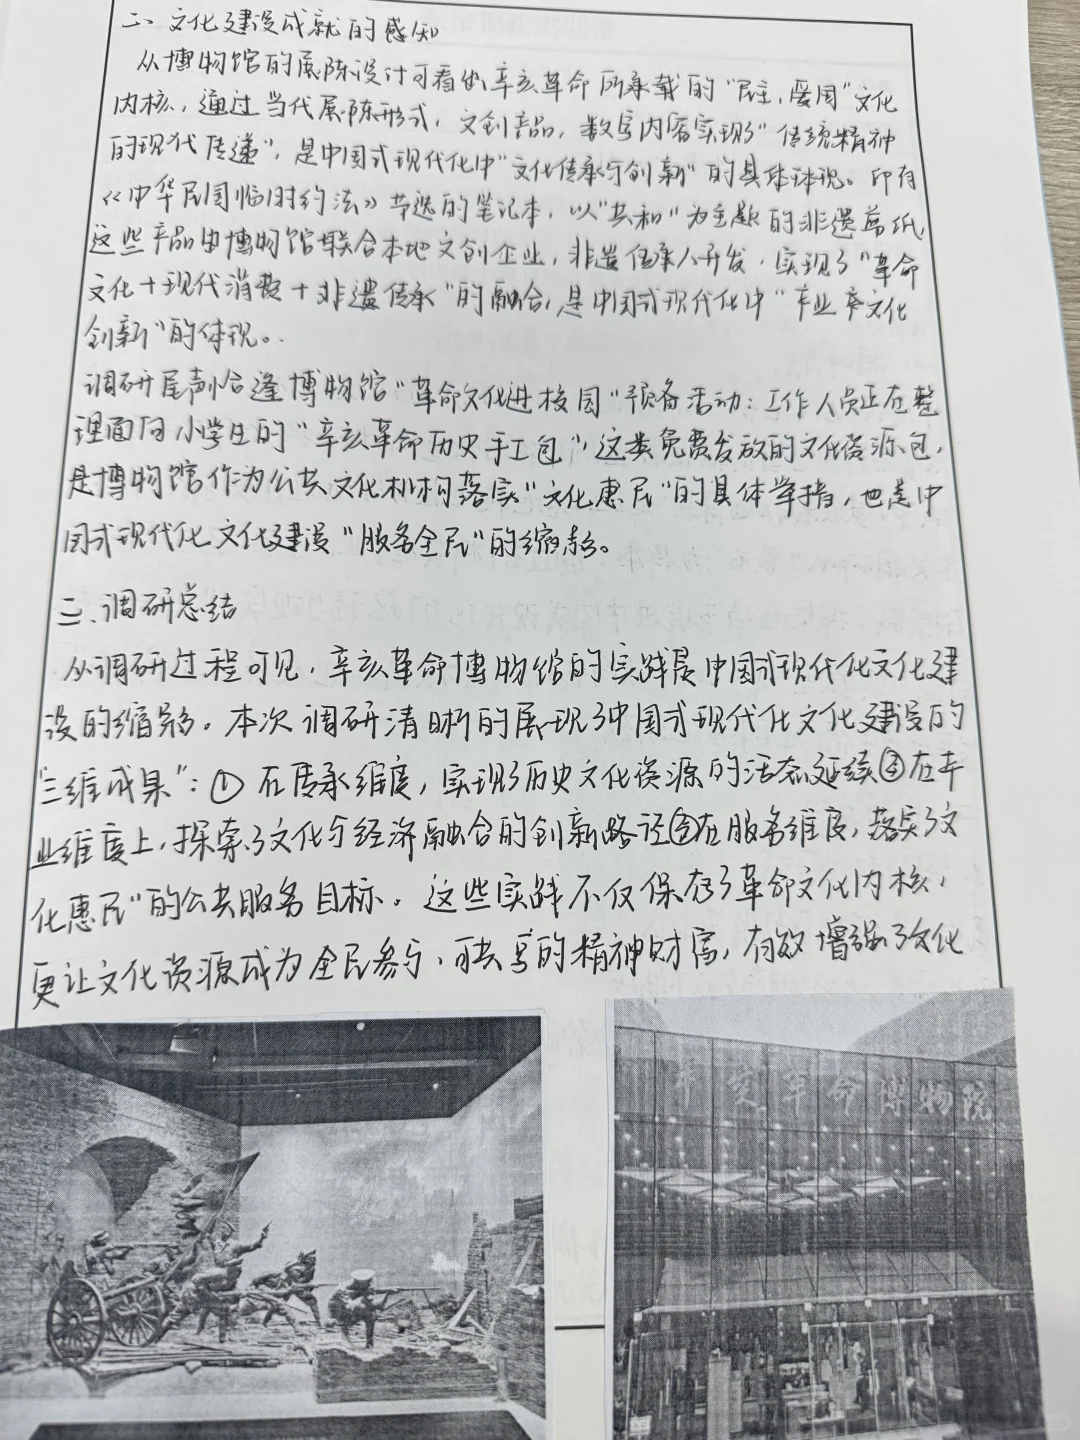 二、文化建设成就的感知
从博物馆的展陈设计可看出辛亥革命所承载的“民主,爱国”文化
内核,通过当代展陈形式,文创产品,数字内容实现了“传统精神
的现代传递”,是中国式现代化中“文化传承与创新”的具体体现。印有
《中华民国临时约法》节选的笔记本,以“共和”为主题的非遗剪纸,
这些产品由博物馆联合本地文创企业,非遗传承人开发,实现了“革命
文化+现代消费+非遗传承”的融合,是中国式现代化中“产业率文化
创新”的体现。
调研尾声恰逢博物馆“革命文化进校园”预备活动:工作人员正在整
理面向小学生的“辛亥革命历史手工包”,这类免费发放的文化资源包,
是博物馆作为公共文化机构落实“文化惠民”的具体举措,也是中
国式现代化文化建设“服务全民”的缩影。
二、调研总结
从调研过程可见,辛亥革命博物馆的实践是中国式现代化文化建
设的缩影。本次调研清晰的展现了中国式现代化文化建设的
“三维成果”:①在传承维度,实现了历史文化资源的活态延续②在产
业维度上,探索了文化与经济融合的创新路径③在服务维度,落实了文
化惠民”的公共服务目标。这些实践不仅保存了革命文化内核,
更让文化资源成为全民参与、可共享的精神财富,有效增强了文化
辛亥革命博物院